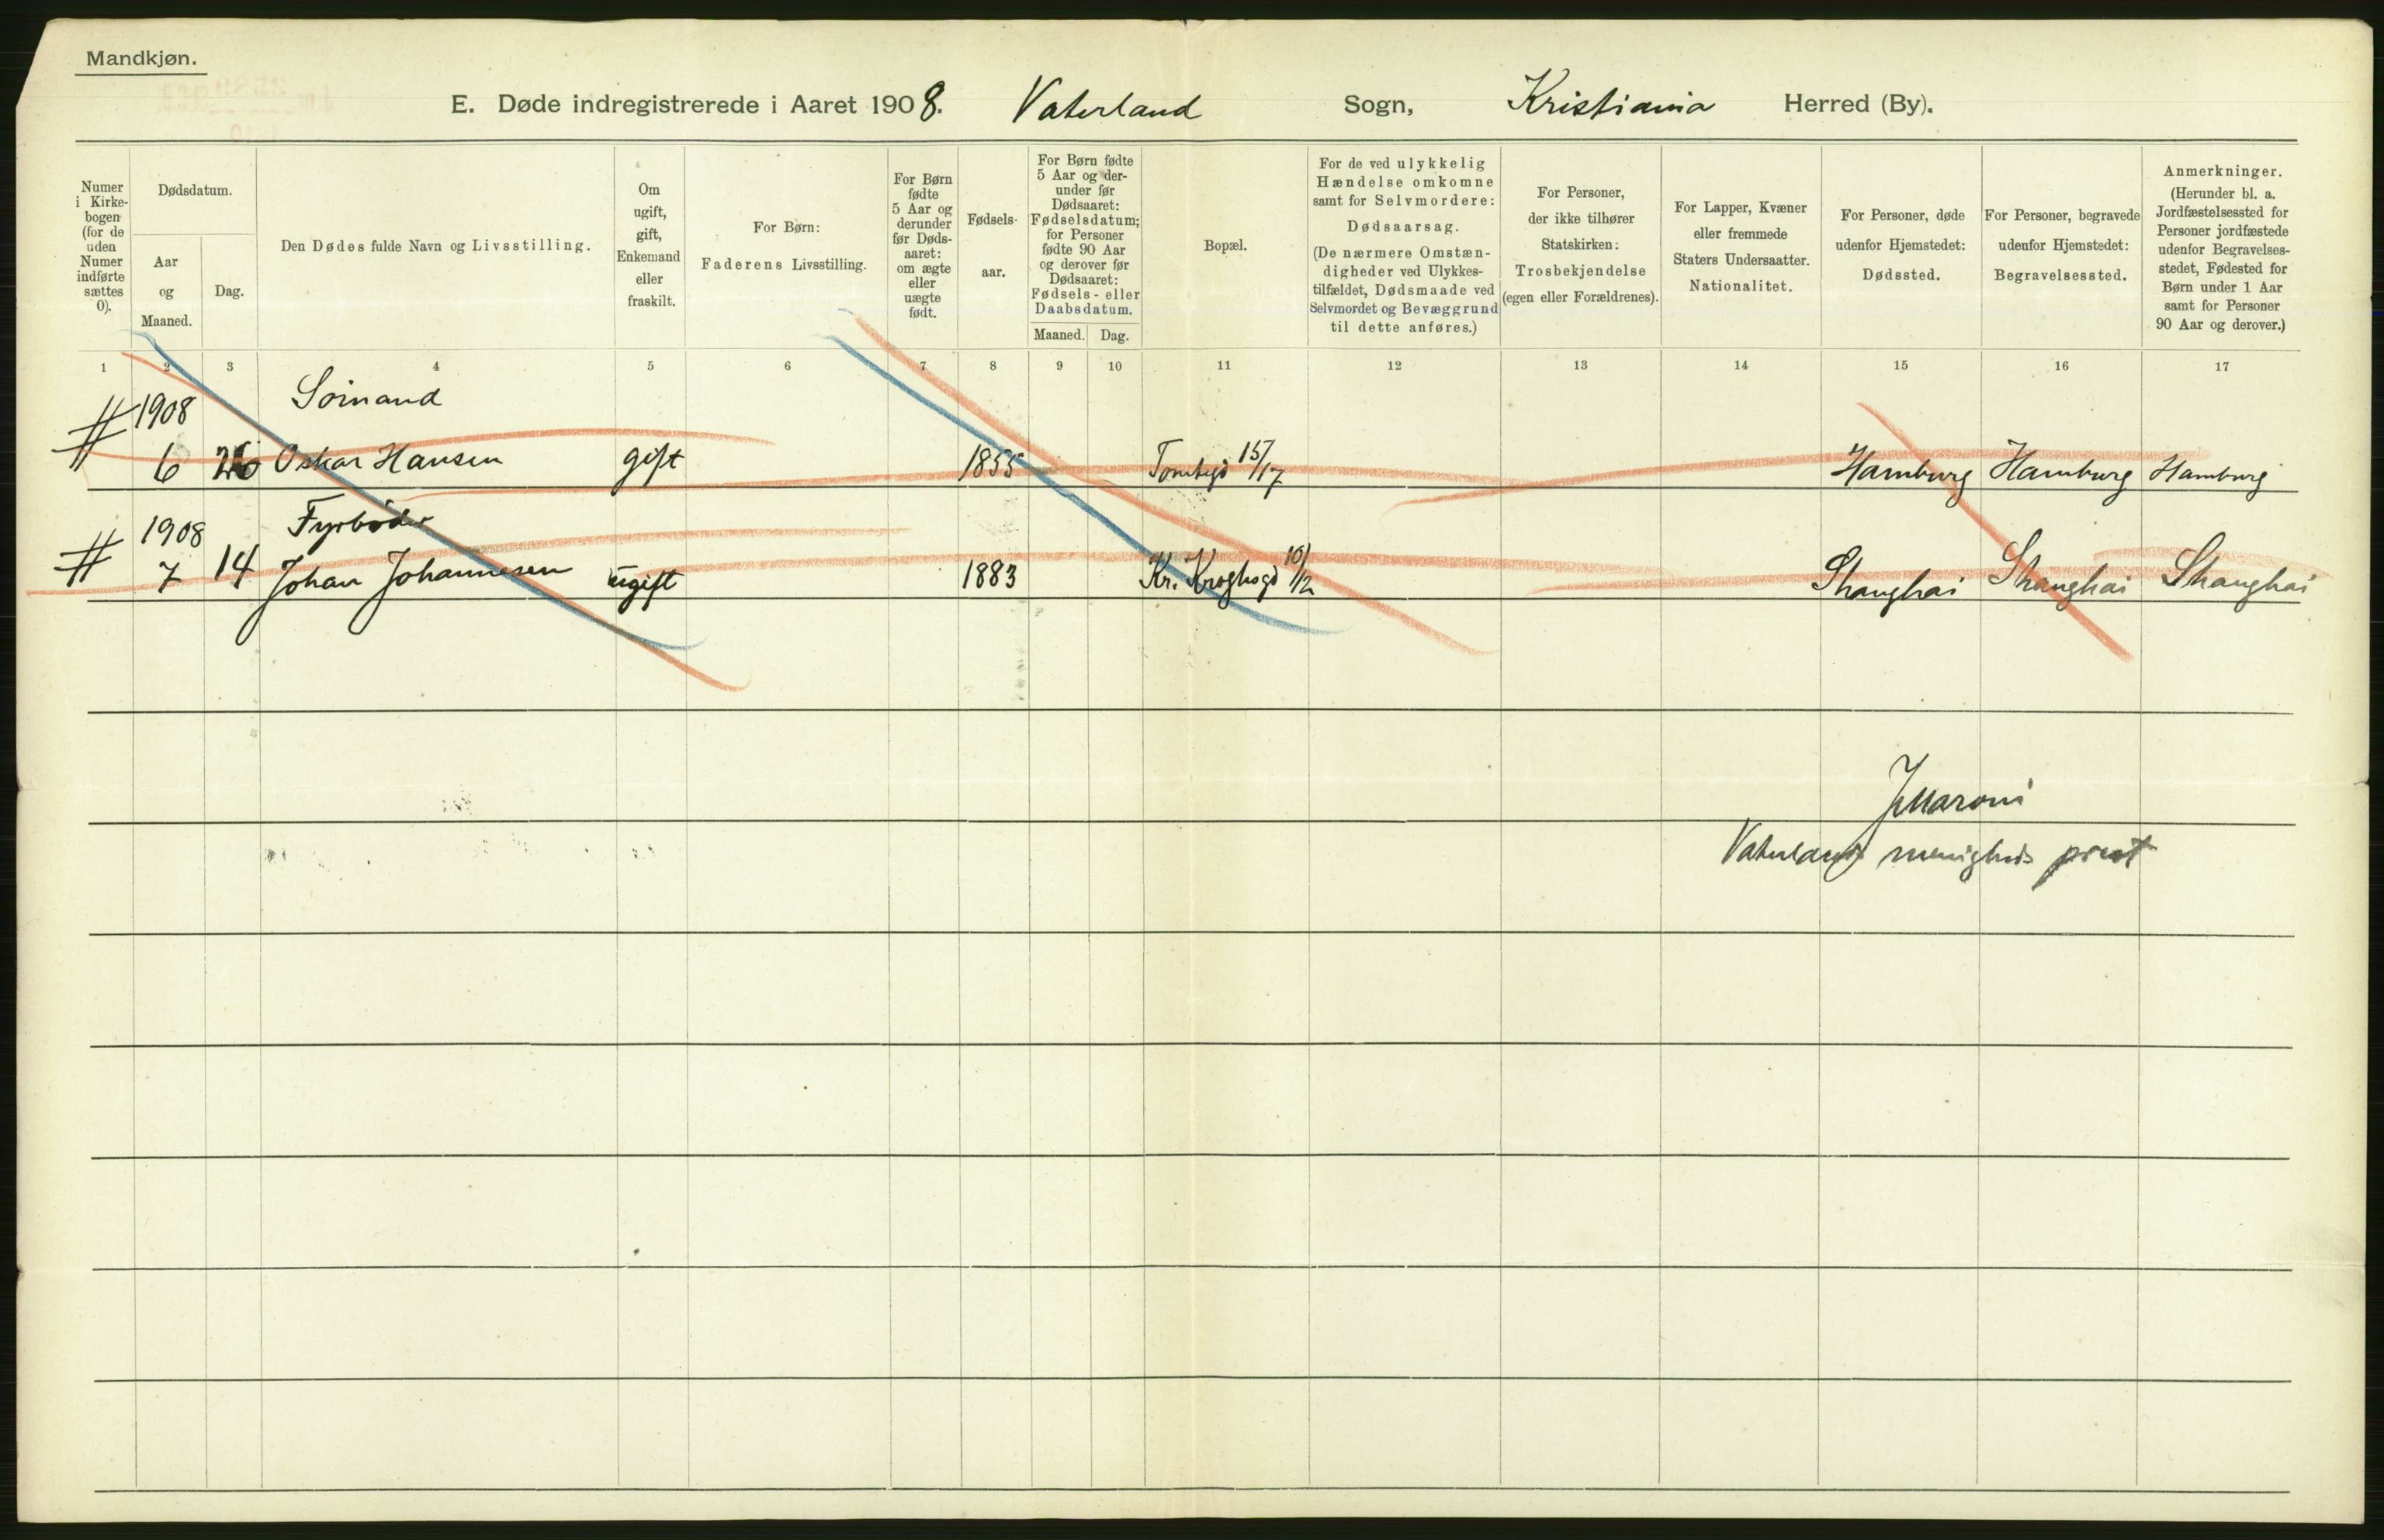 Mandkjøn.
E. Døde indregistrerede i Aaret 1908. Vaterland Sogn, Kristiania Herred (By).
Numer
i Kirke-
bogen
(for de
uden
Numer
indførte
sættes
0).
Dødsdatum.
Aar
og
Maaned.
Dag.
Den Dødes fulde Navn og Livsstilling.
Om
ugift,
gift,
Enkemand
eller
fraskilt.
For Børn:
Faderens Livsstilling.
For Børn
fødte
5 Aar og
derunder
før Døds-
aaret:
om ægte
eller
uægte
født.
Fødsels-
aar.
For Børn fødte
5 Aar og der-
under før
Dødsaaret:
Fødselsdatum;
for Personer
fødte 90 Aar
og derover før
Dødsaaret:
Fødsels- eller
Daabsdatum.
Maaned. Dag.
Bopæl.
For de ved ulykkelig
Hændelse omkomne
samt for Selvmordere:
Dødsaarsag.
(De nærmere Omstæn-
digheder ved Ulykkes-
tilfældet, Dødsmaade ved
Selvmordet og Bevæggrund
til dette anføres.)
For Personer,
der ikke tilhører
Statskirken:
Trosbekjendelse
(egen eller Forældrenes).
For Lapper, Kvæner
eller fremmede
Staters Undersaatter.
Nationalitet.
For Personer, døde
udenfor Hjemstedet:
Dødssted.
For Personer, begravede
udenfor Hjemstedet:
Begravelsessted.
Anmerkninger.
(Herunder bl. a.
Jordfæstelsessted for
Personer jordfæstede
udenfor Begravelses-
stedet, Fødested for
Børn under 1 Aar
samt for Personer
90 Aar og derover.)
1 2 3 4 5 6 7 8 9 10 11 12 13 14 15 16 17
1908 Sømand
# 6 26 Oskar Hansen gift 1855 15/17 Hamburg Hamburg Hamburg
1908 Fyrbøder
# 7 14 Johan Johannesen ugift 1883 Kr. Kroghsgd 10/12 Shanghai Shanghai Shanghai
JMaroni
Vaterlands menigheds prest